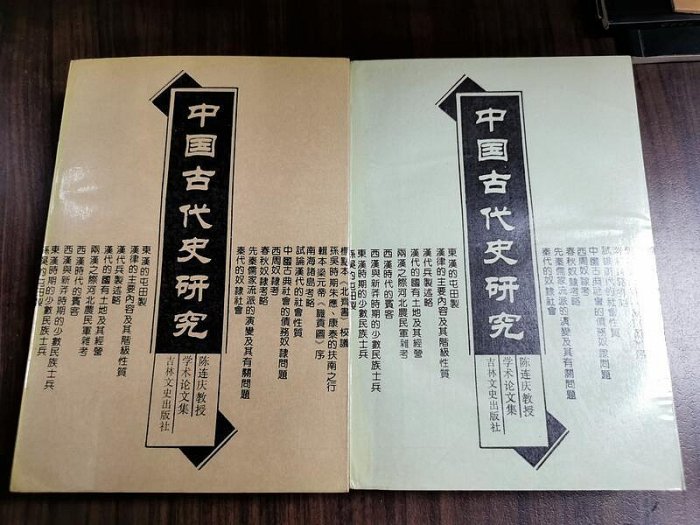 中国古代史研究
陈连庆教授
学术论文集
吉林文史出版社
標點本《北齊書》校議
孫吳時期朱應、康泰的扶南之行
輯本梁元帝《職貢圖》序
南海諸國考略
試論漢代的社會性質
中國古典社會的債務奴隸問題
西周奴隸考
春秋奴隸考略
先秦儒家流派的演變及其有關問題
秦代的奴隸社會
東漢的屯田製
漢律的主要內容及其階級性質
漢代兵製述略
漢代的國有土地及其經營
兩漢之際河北農民軍雜考
西漢時代的賓客
西漢與新莽時期的少數民族士兵
東漢時期的少數民族士兵
孫吳的屯田製
中国古代史研究
陈连庆教授
学术论文集
吉林文史出版社
試論漢代的社會性質
中國古典社會的債務奴隸問題
西周奴隸考
春秋奴隸考略
先秦儒家流派的演變及其有關問題
秦代的奴隸社會
東漢的屯田製
漢律的主要內容及其階級性質
漢代兵製述略
漢代的國有土地及其經營
兩漢之際河北農民軍雜考
西漢時代的賓客
西漢與新莽時期的少數民族士兵
東漢時期的少數民族士兵
孫吳的屯田製